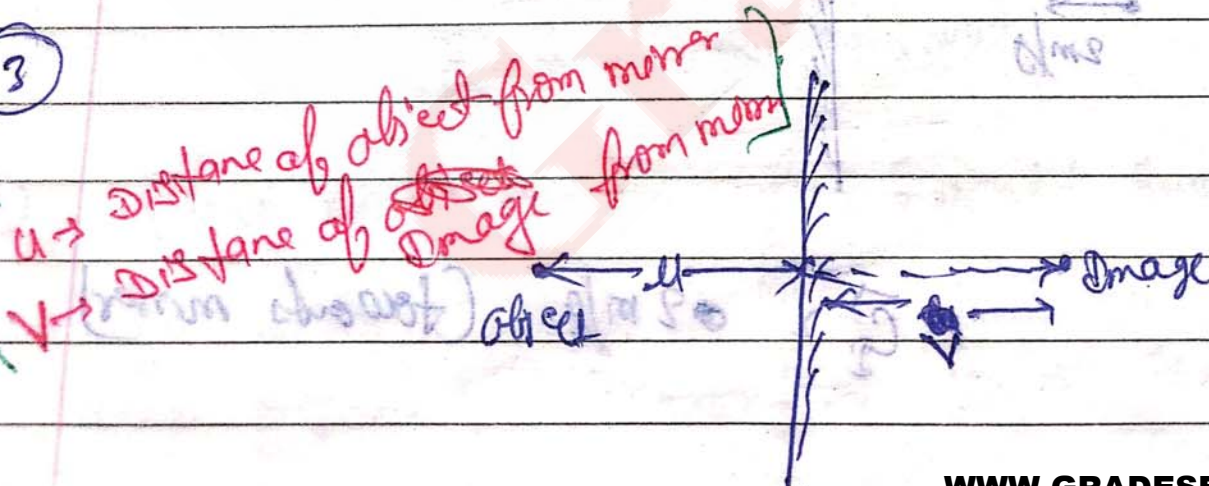 3
u → Distane of object from mirror
V → Distane of Image from mirror
u
object
Image
V
WWW.GRADESE